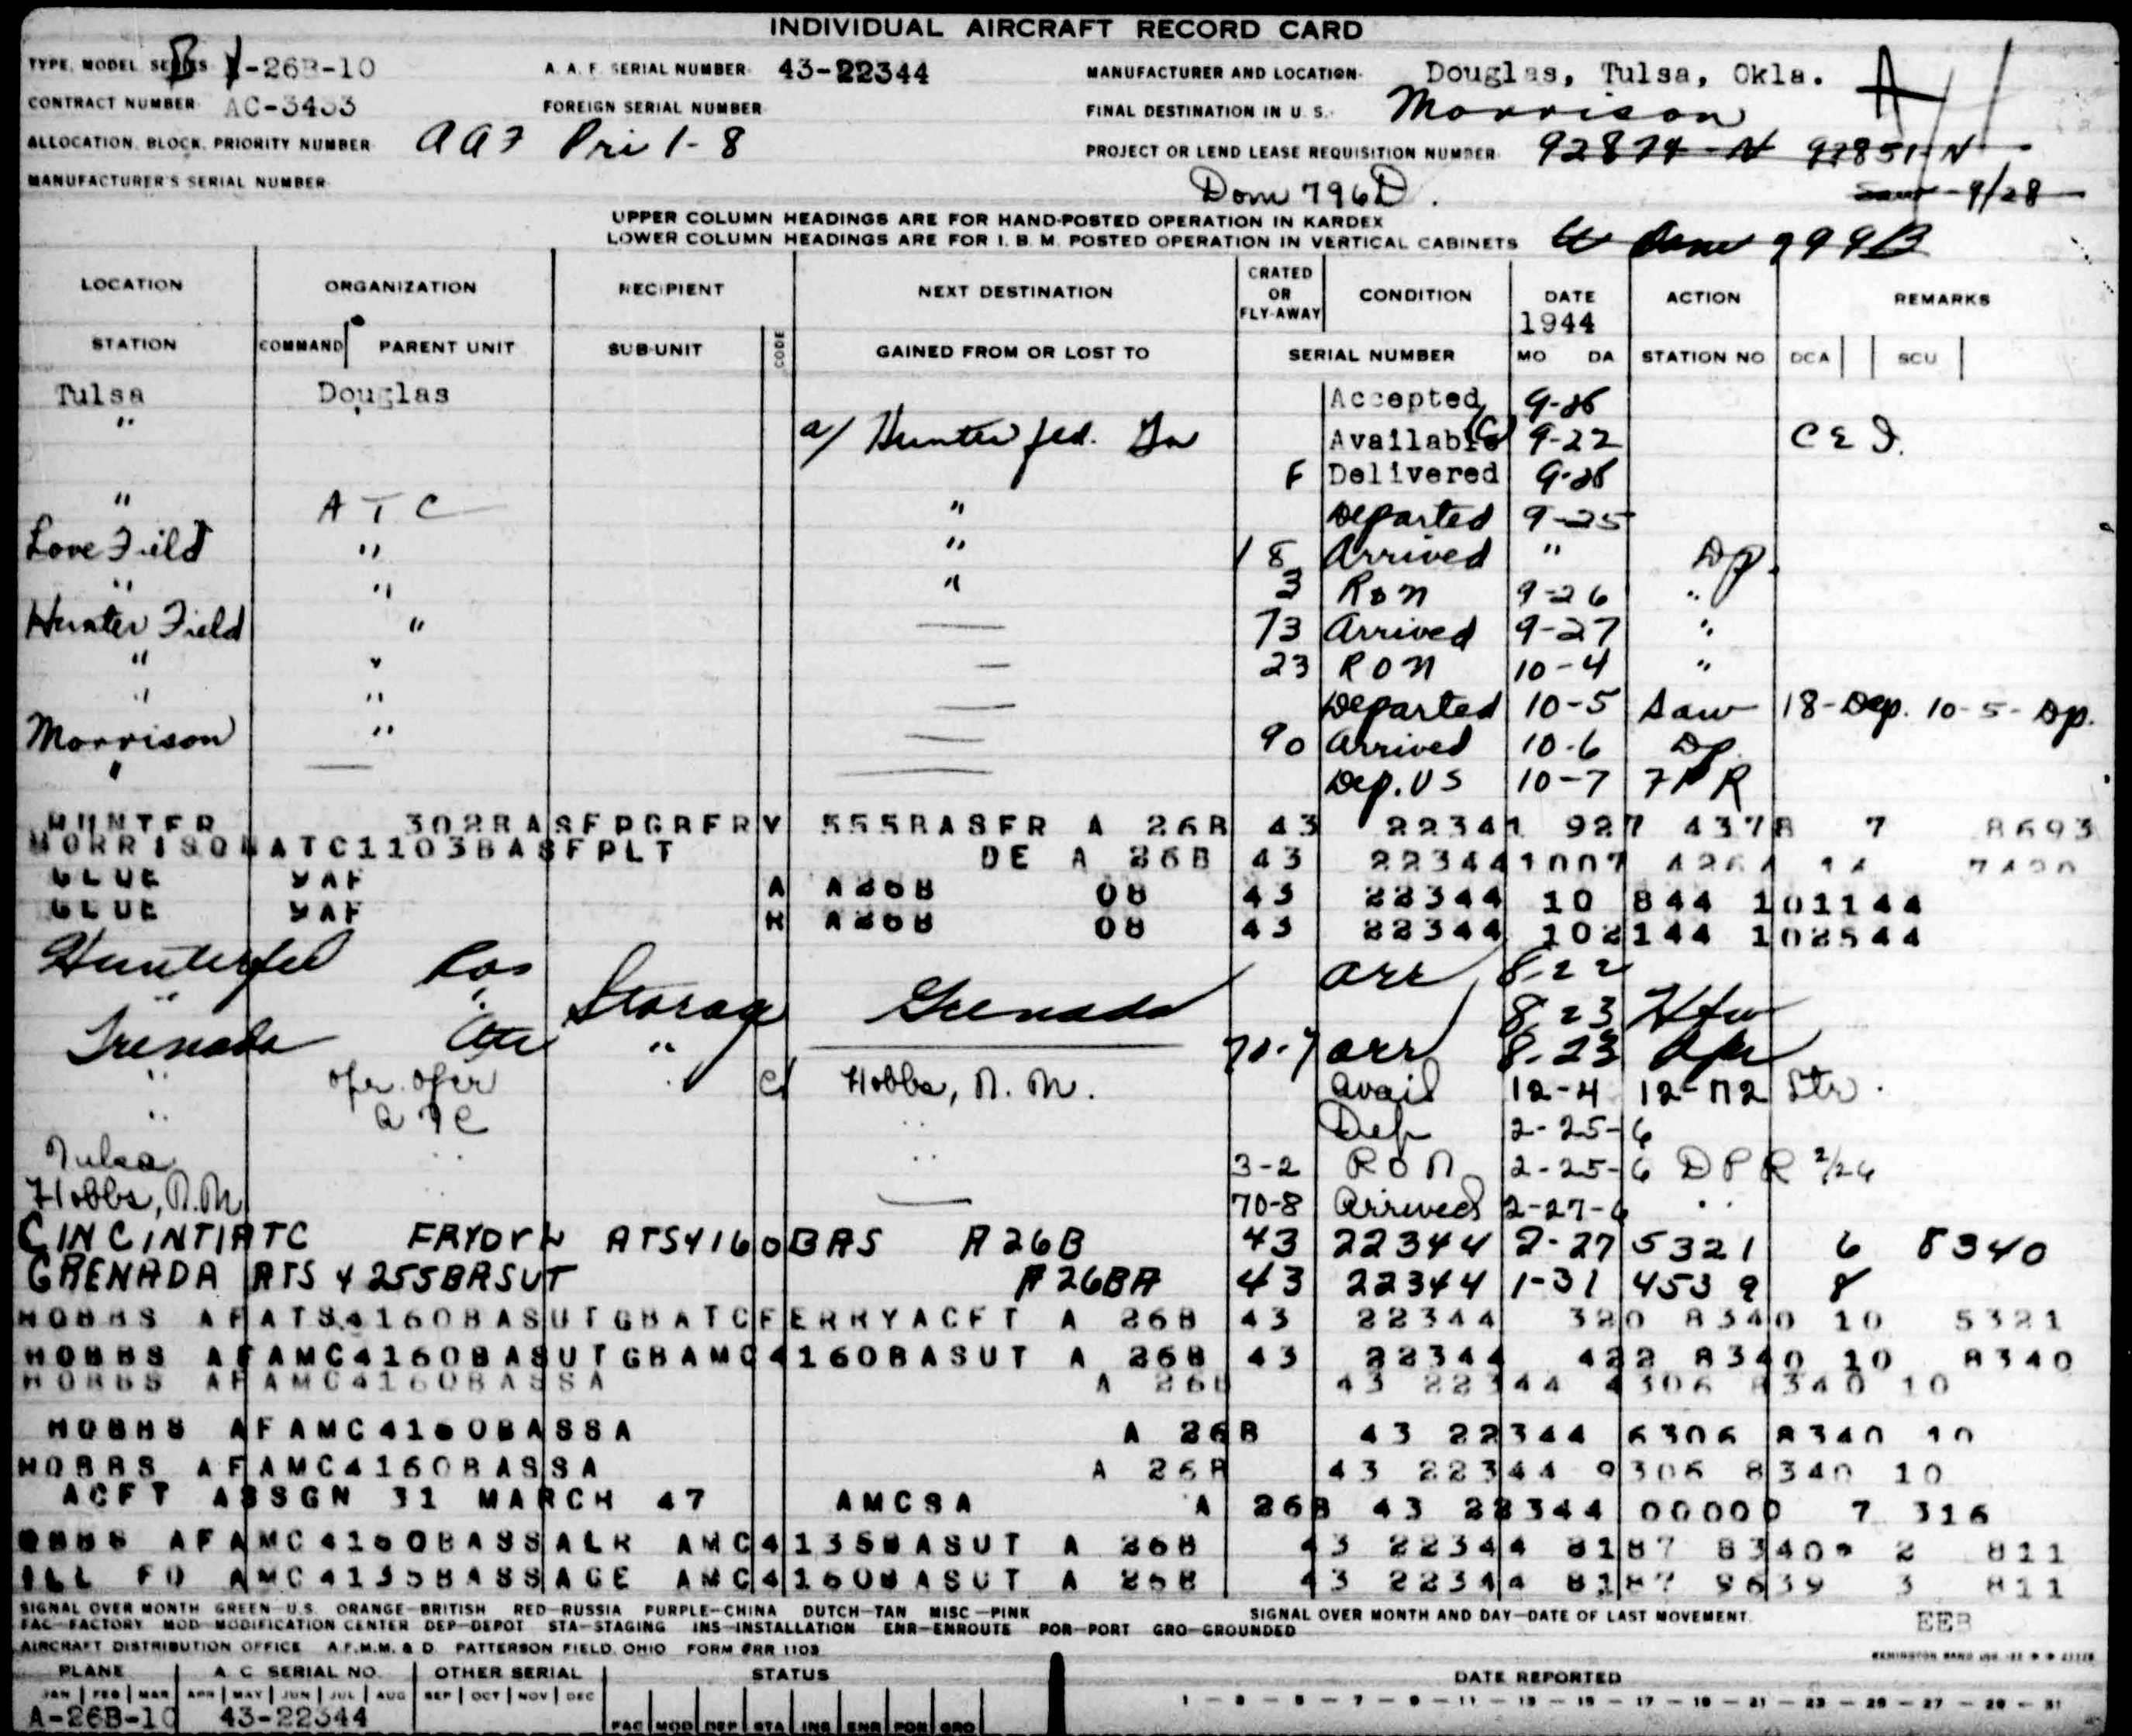 INDIVIDUAL AIRCRAFT RECORD CARD
TYPE, MODEL SERIES B -26B-10 A. A. F. SERIAL NUMBER 43-22344 MANUFACTURER AND LOCATION Douglas, Tulsa, Okla. A
CONTRACT NUMBER AC-3433 FOREIGN SERIAL NUMBER FINAL DESTINATION IN U. S. Morrison
ALLOCATION, BLOCK, PRIORITY NUMBER AAF Pri 1-8 PROJECT OR LEND LEASE REQUISITION NUMBER 92874-N 92851-N
MANUFACTURER'S SERIAL NUMBER Dom 796D. 9/28
UPPER COLUMN HEADINGS ARE FOR HAND-POSTED OPERATION IN KARDEX
LOWER COLUMN HEADINGS ARE FOR I. B. M. POSTED OPERATION IN VERTICAL CABINETS 999B
LOCATION ORGANIZATION RECIPIENT NEXT DESTINATION CRATED OR FLY-AWAY CONDITION DATE ACTION REMARKS
1944
STATION COMMAND PARENT UNIT SUB-UNIT CODE GAINED FROM OR LOST TO SERIAL NUMBER MO DA STATION NO DCA SCU
Tulsa Douglas Accepted
" a/ Hunter fld. Ga Available (C) 9-22 C & I.
F Delivered
" ATC " Departed 9-25
Love Field " " 18 Arrived " Dp.
" " " 3 RON 9-26 "
Hunter Field " — 73 Arrived 9-27 "
" " — 23 RON 10-4 "
" " — Departed 10-5 Saw 18-Dep. 10-5-Dp.
Morrison " — 90 Arrived 10-6 Dp
" — — Dep. US 10-7
HUNTER 302BASFPGRFR V 555BASFR A 26B 43 22341 927 4378 7 8693
MORRISONATC1103BASFPLT DE A 26B 43 223441007 4264 14 7420
GLUE A A26B 08 43 22344 10 844 101144
GLUE R A26B 08 43 22344 102144 102544
Hunter fld Storage Grenada arr 8-22
" " 8-23
Grenada " 70-7 arr 8-23
" opr. ofcr " C Hobbs, N. M. Avail 12-4 Str.
" ATC " Dep 2-25-6
Tulsa " " 3-2 RON 2-25-6 DPR 2/26
Hobbs, N.M " — 70-8 Arrived 2-27-6 "
CINCINTIATC ATS4160BAS A26B 43 22344 2-27 5321 6 8340
GRENADA ATS 4255BASUT A26BA 43 22344 1-31 4539 8
HOBBS AFATS4160BASUTGBATCFERRYACFT A 26B 43 22344 320 8340 10 5321
HOBBS AFAMC4160BASUTGBAMC4160BASUT A 26B 43 22344 422 8340 10 8340
HOBBS AFAMC4160BASSA A 26B 43 22344 4306 8340 10
HOBBS AFAMC4160BASSA A 26B 43 22344 6306 8340 10
HOBBS AFAMC4160BASSA A 26B 43 22344 9306 8340 10
ACFT ASSGN 31 MARCH 47 AMCSA A 26B 43 22344 00000 7 316
AFAMC4160BASSALR AMC4135BASUT A 26B 43 22344 8187 8340 2 811
ILL FD AMC4135BASSAGE AMC4160BASUT A 26B 43 22344 8187 9639 3 811
SIGNAL OVER MONTH GREEN—U.S. ORANGE—BRITISH RED—RUSSIA PURPLE—CHINA DUTCH—TAN MISC—PINK SIGNAL OVER MONTH AND DAY—DATE OF LAST MOVEMENT. EEB
FAC—FACTORY MOD MODIFICATION CENTER DEP—DEPOT STA—STAGING INS—INSTALLATION ENR—ENROUTE POR—PORT GRO—GROUNDED
AIRCRAFT DISTRIBUTION OFFICE A.F.M.M. & D. PATTERSON FIELD, OHIO FORM PRR 1103
PLANE A C SERIAL NO. OTHER SERIAL STATUS DATE REPORTED
JAN FEB MAR APR MAY JUN JUL AUG SEP OCT NOV DEC 1 — 3 — 5 — 7 — 9 — 11 — 13 — 15 — 17 — 19 — 21 — 23 — 25 — 27 — 29 — 31
A-26B-10 43-22344
FAC MOD DEP STA INS ENR POR GRO